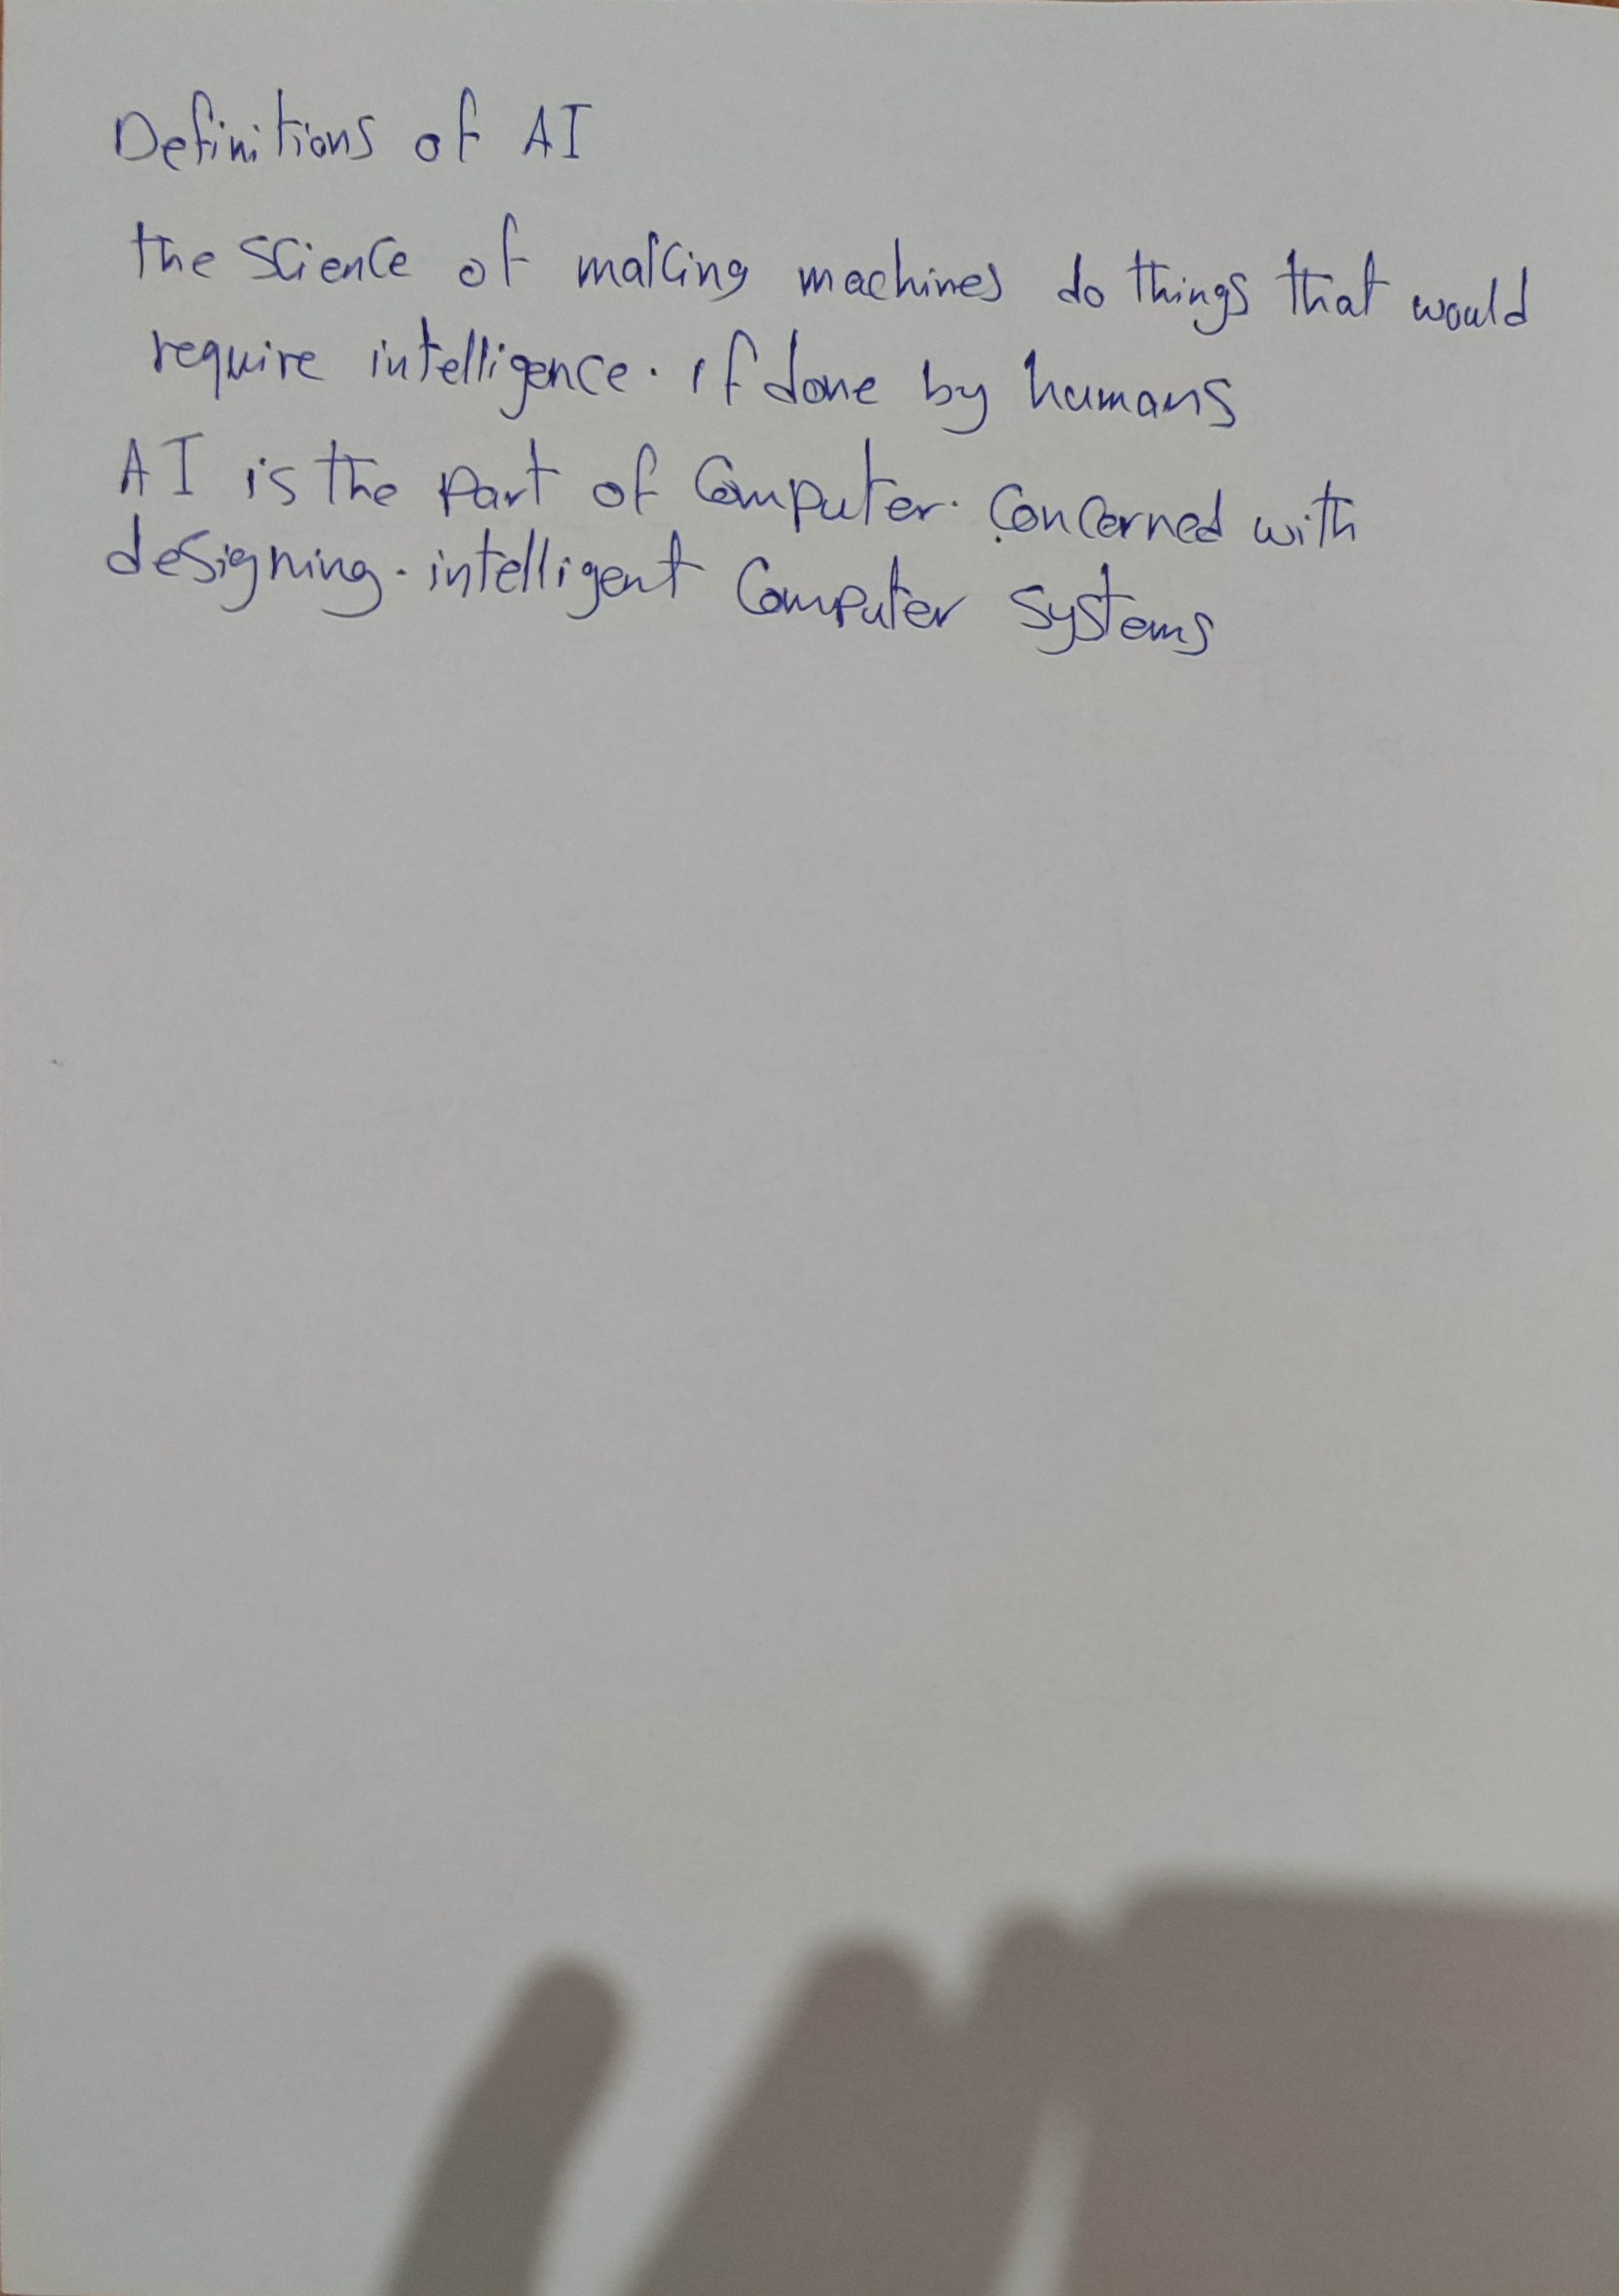 Definitions of AI
the science of making machines do things that would
require intelligence. if done by humans
AI is the part of Computer. Concerned with
designing. intelligent Computer systems